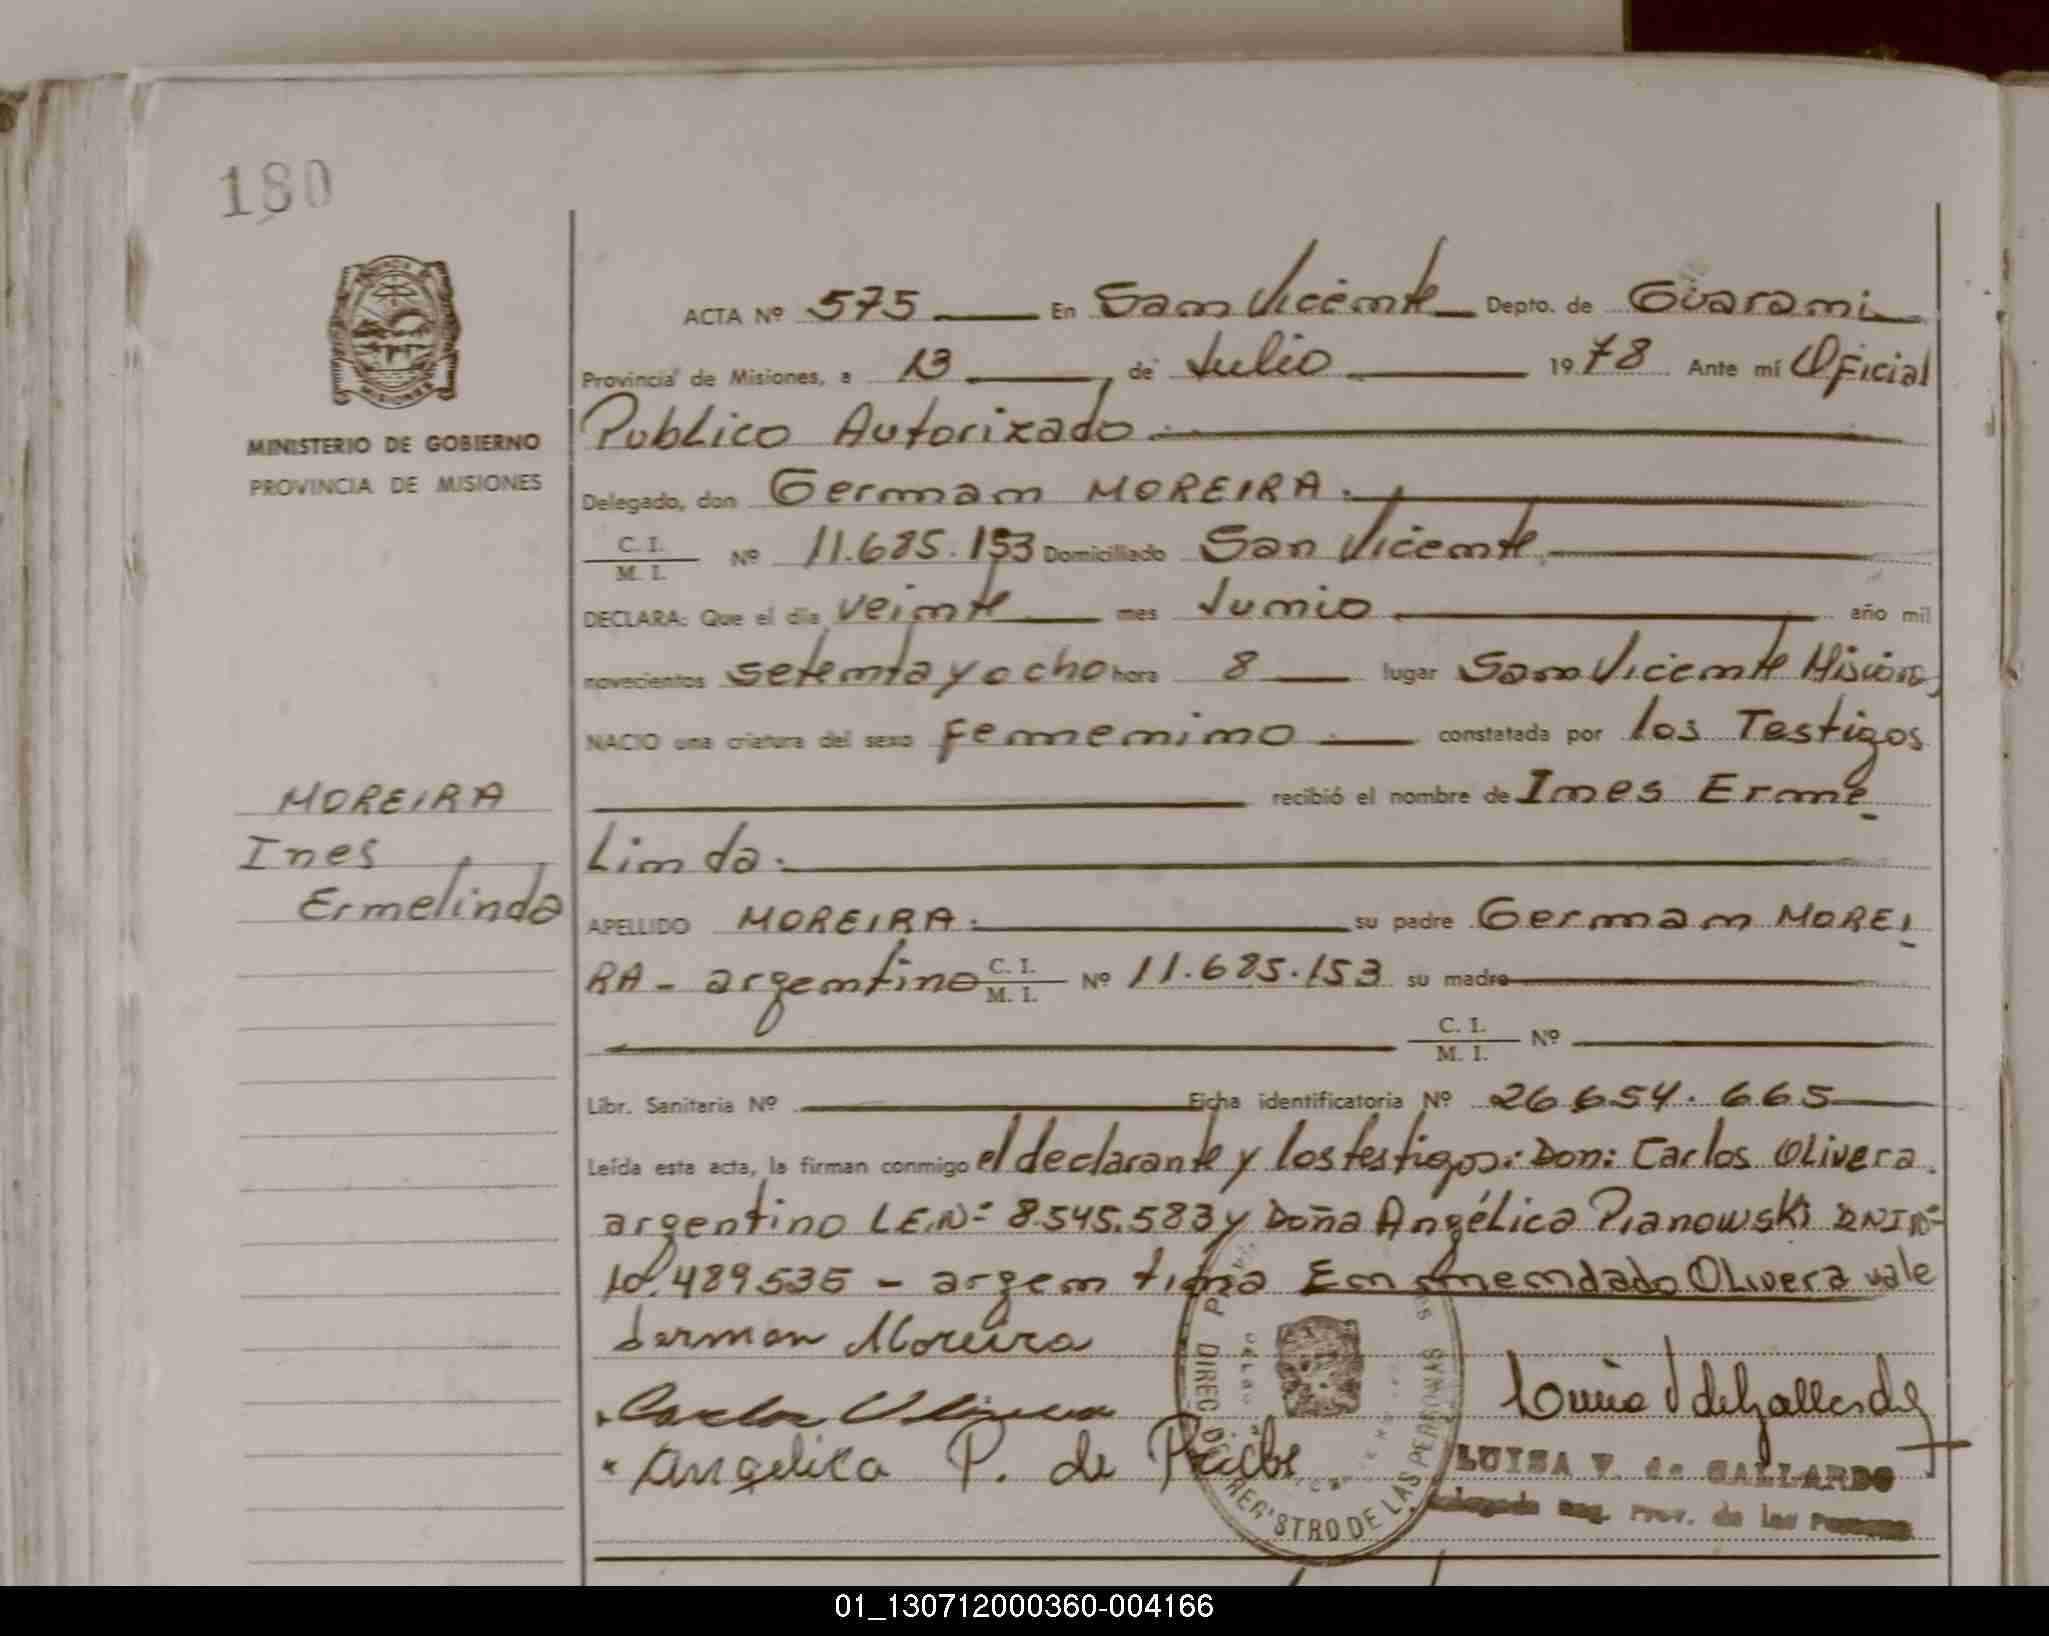 180
MINISTERIO DE GOBIERNO
PROVINCIA DE MISIONES
MOREIRA
Ines
Ermelinda
ACTA Nº 575 En San Vicente Depto. de Guarani
Provincia de Misiones, a 13 de Julio 1978 Ante mí Oficial
Publico Autorizado.
Delegado, don German MOREIRA.
C. I. / M. I. Nº 11.685.153 Domiciliado San Vicente.
DECLARA: Que el día veinte mes Junio año mil
novecientos setenta y ocho hora 8 lugar San Vicente Misiones
NACIO una criatura del sexo femenino constatada por los Testigos
recibió el nombre de Ines Erme
Linda.
APELLIDO MOREIRA. su padre German MOREI
RA - argentino C. I. / M. I. Nº 11.685.153 su madre
C. I. / M. I. Nº
Libr. Sanitaria Nº Ficha identificatoria Nº 26.654.665
Leída esta acta, la firman conmigo el declarante y los testigos: Don: Carlos Olivera
argentino L.E.Nº 8.545.583 y Doña Angélica Pianowski DNI Nº
10.489535 - argentina Enmendado Olivera vale
German Moreira
Carlos Olivera
Angelica P. de
LUISA V. de GALLARDO
Delegada Reg. Prov. de las Personas
DIREC DE REGISTRO DE LAS PERSONAS
01_130712000360-004166